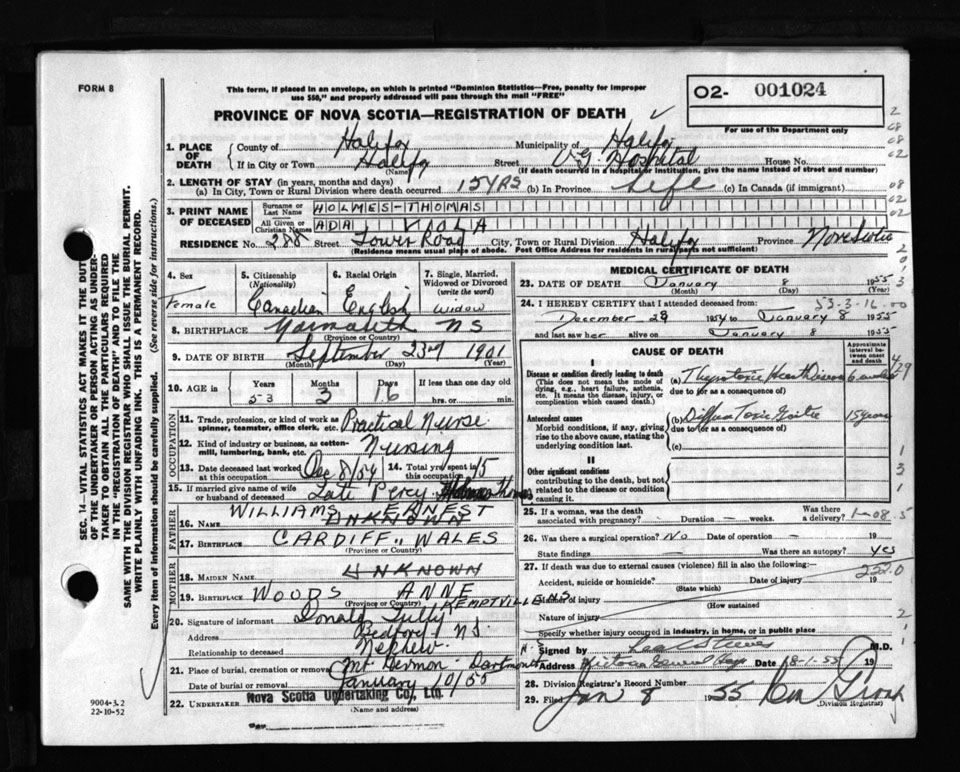 FORM 8
This form, if placed in an envelope, on which is printed "Dominion Statistics—Free, penalty for improper
use $50," and properly addressed will pass through the mail "FREE"
O2- 001024
For use of the Department only
PROVINCE OF NOVA SCOTIA—REGISTRATION OF DEATH
SEC. 14—VITAL STATISTICS ACT MAKES IT THE DUTY
OF THE UNDERTAKER OR PERSON ACTING AS UNDER-
TAKER TO OBTAIN ALL THE PARTICULARS REQUIRED
IN THE "REGISTRATION OF DEATH" AND TO FILE THE
SAME WITH THE DIVISION REGISTRAR WHO SHALL ISSUE THE BURIAL PERMIT.
WRITE PLAINLY WITH UNFADING INK. THIS IS A PERMANENT RECORD.
Every item of information should be carefully supplied. (See reverse side for instructions.)
1. PLACE OF DEATH
County of Halifax Municipality of Halifax
If in City or Town Halifax Street V.G. Hospital House No.
(Name) (If death occurred in a hospital or institution, give the name instead of street and number)
2. LENGTH OF STAY (in years, months and days)
(a) In City, Town or Rural Division where death occurred 15 YRS (b) In Province Life (c) In Canada (if immigrant)
3. PRINT NAME OF DECEASED
Surname or Last Name HOLMES-THOMAS
All Given or Christian Names ADA VIOLA
RESIDENCE No. 288 Street Tower Road City, Town or Rural Division Halifax Province Nova Scotia
(Residence means usual place of abode. Post Office Address for residents in rural parts not sufficient)
4. Sex
Female
5. Citizenship (Nationality)
Canadian
6. Racial Origin
English
7. Single, Married, Widowed or Divorced (write the word)
widow
8. BIRTHPLACE Yarmouth NS
(Province or Country)
9. DATE OF BIRTH September 23rd 1901
(Month) (Day) (Year)
10. AGE in Years Months Days If less than one day old
53 3 16 hrs. or min.
OCCUPATION
11. Trade, profession, or kind of work as spinner, teamster, office clerk, etc. Practical Nurse
12. Kind of industry or business, as cotton-mill, lumbering, bank, etc. Nursing
13. Date deceased last worked at this occupation Dec 8/54 14. Total yrs. spent in this occupation 15
15. If married give name of wife or husband of deceased Late Percy Holmes Thomas
FATHER
WILLIAMS ERNEST
16. Name UNKNOWN
17. Birthplace CARDIFF, WALES
(Province or Country)
MOTHER
18. Maiden Name UNKNOWN
WOODS ANNE
19. Birthplace KEMPTVILLE NS
(Province or Country)
20. Signature of informant Donald Tully
Address Bedford NS
Relationship to deceased Nephew
21. Place of burial, cremation or removal Mt. Hermon - Dartmouth
Date of burial or removal January 10/55
22. UNDERTAKER Nova Scotia Undertaking Co., Ltd.
(Name and address)
9004-3.2
22-10-52
MEDICAL CERTIFICATE OF DEATH
23. DATE OF DEATH January 8 1955
(Month) (Day) (Year)
24. I HEREBY CERTIFY that I attended deceased from: 53-3-16-00
December 28 1954 to January 8 1955
and last saw her alive on January 8 1955
CAUSE OF DEATH
Approximate interval between onset and death
I
Disease or condition directly leading to death
(This does not mean the mode of dying, e.g., heart failure, asthenia, etc. It means the disease, injury, or complication which caused death.)
(a) Thyrotoxic Heart Disease 6 weeks
due to (or as a consequence of)
Antecedent causes
Morbid conditions, if any, giving rise to the above cause, stating the underlying condition last.
(b) Diffuse Toxic Goitre 15 years
due to (or as a consequence of)
(c)
II
Other significant conditions contributing to the death, but not related to the disease or condition causing it.
25. If a woman, was the death associated with pregnancy? - Duration — weeks. Was there a delivery?
26. Was there a surgical operation? No Date of operation — 19
State findings — Was there an autopsy? yes
27. If death was due to external causes (violence) fill in also the following:
Accident, suicide or homicide? Date of injury 19
(State which)
Manner of injury
(How sustained)
Nature of injury
Specify whether injury occurred in industry, in home, or in public place
Signed by M.D.
Address Victoria General Hosp Date 8-1-55 19
28. Division Registrar's Record Number
29. Filed Jan 8 1955
(Division Registrar)